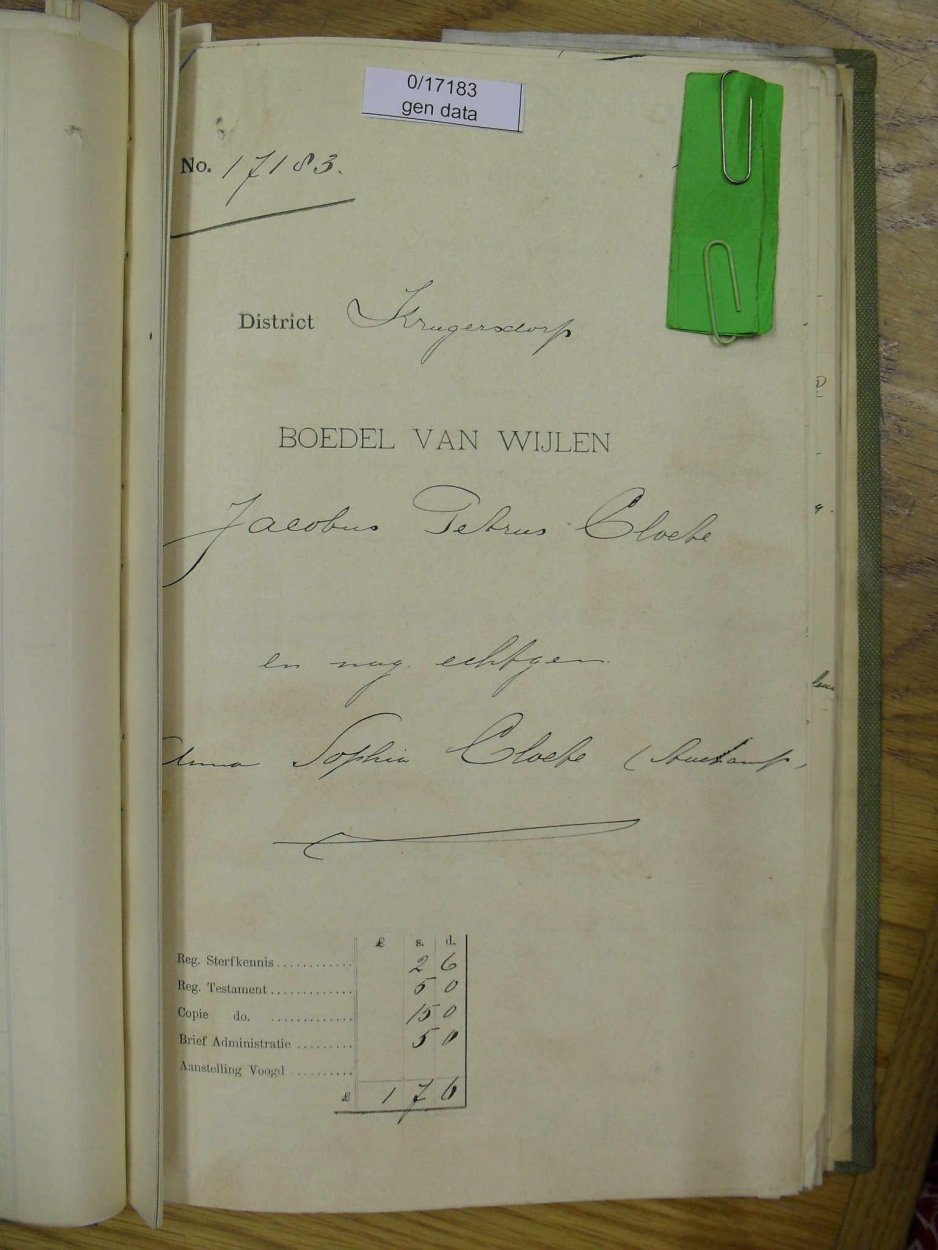 0/17183
gen data
No. 17183.
District Krugersdorp.
BOEDEL VAN WIJLEN
Jacobus Petrus Cloete
en nag. echtgen.
Anna Sophia Cloete
£ s. d.
Reg. Sterfkennis............ 2 6
Reg. Testament............. 5 0
Copie do. ............. 15 0
Brief Administratie ......... 5 0
Aanstelling Voogd ..........
£ 1 7 6